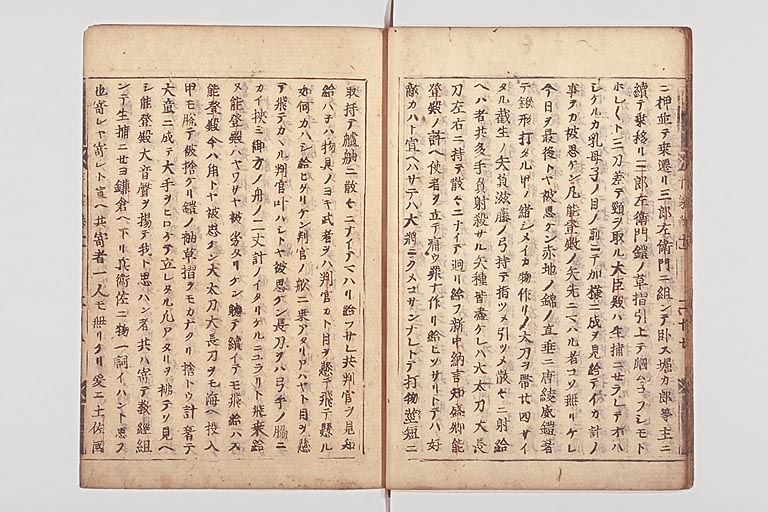 ニ押並テ乗遷リ三郎左衛門ニ組ンテ臥ス堀カ郎等主ニ
續テ乗移リ三郎左衛門鎧ノ草摺引上テ
ホレ〳〵ト三刀差テ頸ヲ取ル大臣殿ハ生捕ニセラレテオハ
シケルカ乳母子ノ目ノ前ニテ加様ニ成ヲ見給テイカ計ノ
事ヲカ被思ケン凡能登殿ノ矢先ニマハル者コソ無リケレ
今日ヲ最後トヤ被思ケン赤地ノ錦ノ直垂ニ唐綾威鎧着
テ 打タル甲ノ緒シメイカ物作リノ大刀ヲ帯廿四サイ
タル截生ノ矢負滋藤ノ弓持テ指ツメ引ツメ散々ニ射給
ヘハ者共多手負射殺サル矢種皆盡ケレハ大太刀大長
刀左右ニ持テ散々ニナイテ廻リ給フ新中納言知盛卿能
登殿ノ許ヘ使者ヲ立テ痛ツ罪ナ作リ給ヒソサリトテハ好
敵カハト宣ヘハサテハ大将ニクメコサンナレトテ打物莖短ニ
取持テ艫舳ニ散々ニナイテマハリ給フサレ共判官ヲ見知
給ハネハ物具ノヨキ武者ヲハ判官カト目ヲ懸テ飛テ懸ル
如何カハシ給ヒタリケン判官ノ舩ニ乗アタリアハヤト目ヲ懸
テ飛テカヽル判官叶ハシトヤ被思ケン長刀ヲハ弓手ノ脇ニ
カイ挾ミ御方ノ舟ノ二丈計ノイタリケルニユラリト飛乗給
ヌ能登殿ハヤワサヤ被劣タリケン軈テ續イテモ飛給ハス
能登殿今ハ角トヤ被思ケン大太刀大長刀ヲモ海ヘ投入
甲モ脱テ被捨ケリ鎧ノ袖草摺ヲモカナクリ捨トウ計着テ
大童ニ成テ大手ヲヒロケテ立レタル凡アタリヲ拂テソ見ヘ
シ能登殿大音聲ヲ揚テ我ト思ハン者共ハ寄テ教經組
ンテ生捕ニセヨ鎌倉ヘ下リ兵衛佐ニ物一詞イハント思フ
也寄レヤ寄レト宣ヘ共寄者一人モ無リケリ爰ニ土佐國